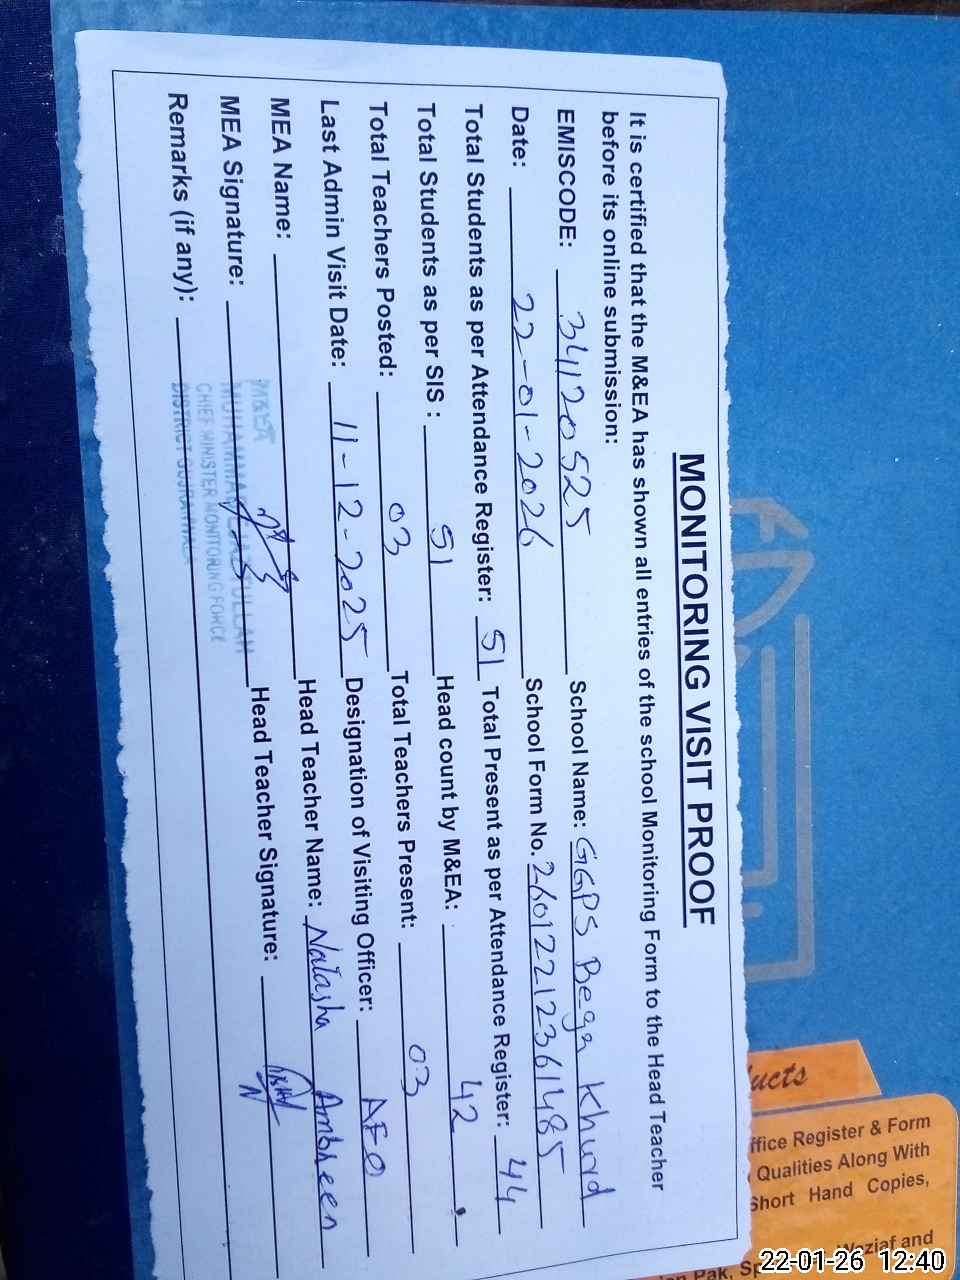 MONITORING VISIT PROOF
It is certified that the M&EA has shown all entries of the school Monitoring Form to the Head Teacher
before its online submission:
EMISCODE: 34112052 5 School Name: GGPS Bega Khurd
Date: 22-01-2026 School Form No. 26012212361485
Total Students as per Attendance Register: 51 Total Present as per Attendance Register: 44
Total Students as per SIS : 51 Head count by M&EA: 42
Total Teachers Posted: 03 Total Teachers Present: 03
Last Admin Visit Date: 11-12-2025 Designation of Visiting Officer: AEO
MEA Name: Head Teacher Name: Natasha Ambreen
MEA Signature: Head Teacher Signature:
Remarks (if any):
M&EA
CHIEF MINISTER MONITORING FORCE
DISTRICT GUJRANWALA
ucts
ffice Register & Form
Qualities Along With
Short Hand Copies,
Waziaf and
Pak, Sp
22-01-26 12:40